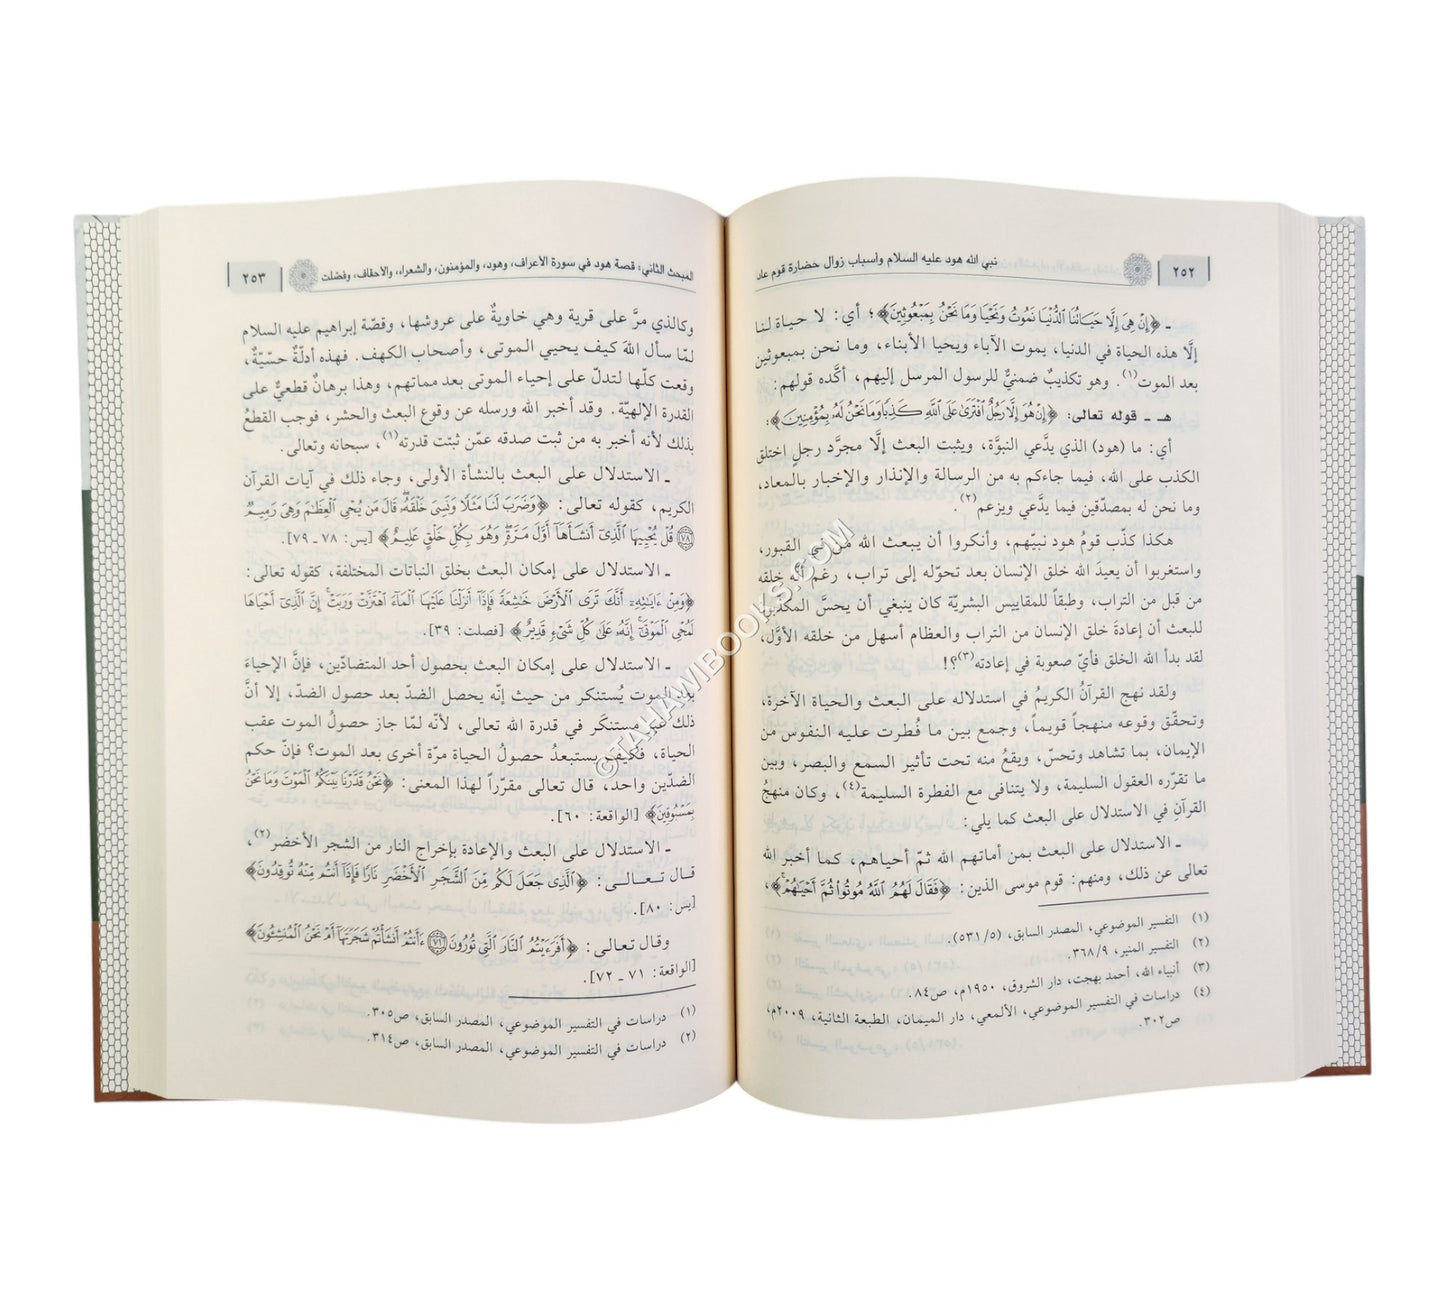 ٢٥٢
نبي الله هود عليه السلام وأسباب زوال حضارة قوم عاد
ـ ﴿إِنْ هِيَ إِلَّا حَيَاتُنَا الدُّنْيَا نَمُوتُ وَنَحْيَا وَمَا نَحْنُ بِمَبْعُوثِينَ﴾؛ أي: لا حياة لنا
إلَّا هذه الحياة في الدنيا، يموت الآباء ويحيا الأبناء، وما نحن بمبعوثين
بعد الموت(١). وهو تكذيبٌ ضمنيٌّ للرسول المرسل إليهم، أكَّده قولهم:
هـ ـ قوله تعالى: ﴿إِنْ هُوَ إِلَّا رَجُلٌ افْتَرَىٰ عَلَى اللَّهِ كَذِبًا وَمَا نَحْنُ لَهُ بِمُؤْمِنِينَ﴾:
أي: ما (هود) الذي يدَّعي النبوَّة، ويثبت البعث إلَّا مجرَّد رجلٍ اختلق
الكذب على الله، فيما جاءكم به من الرسالة والإنذار والإخبار بالمعاد،
وما نحن له بمصدّقين فيما يدَّعي ويزعم(٢).
هكذا كذّب قومُ هود نبيّهم، وأنكروا أن يبعث الله من في القبور،
واستغربوا أن يعيدَ الله خلق الإنسان بعد تحوّله إلى تراب، رغم أنّه خلقه
من قبل من التراب، وطبقاً للمقاييس البشريّة كان ينبغي أن يحسَّ المكذّبون
للبعث أن إعادةَ خلق الإنسان من التراب والعظام أسهل من خلقه الأوَّل،
لقد بدأ الله الخلق فأيّ صعوبة في إعادته(٣)؟!
ولقد نهج القرآنُ الكريمُ في استدلاله على البعث والحياة الآخرة،
وتحقّق وقوعه منهجاً قويماً، وجمع بين ما فُطرت عليه النفوس من
الإيمان، بما تشاهد وتحسّ، ويقعُ منه تحت تأثير السمع والبصر، وبين
ما تقرّره العقول السليمة، ولا يتنافى مع الفطرة السليمة(٤)، وكان منهجُ
القرآنِ في الاستدلال على البعث كما يلي:
ـ الاستدلال على البعث بمن أماتهم الله ثمّ أحياهم، كما أخبر الله
تعالى عن ذلك، ومنهم: قوم موسى الذين: ﴿فَقَالَ لَهُمُ اللَّهُ مُوتُوا ثُمَّ أَحْيَاهُمْ﴾،
(١) التفسير الموضوعي، المصدر السابق، (٥٣١/٥).
(٢) التفسير المنير، ٣٦٨/٩.
(٣) أنبياء الله، أحمد بهجت، دار الشروق، ١٩٥٠م، ص٨٤.
(٤) دراسات في التفسير الموضوعي، الألمعي، دار الميمان، الطبعة الثانية، ٢٠٠٩م،
ص٣٠٢.
المبحث الثاني: قصة هود في سورة الأعراف، وهود، والمؤمنون، والشعراء، والأحقاف، وفصّلت
٢٥٣
وكالذي مرَّ على قرية وهي خاويةٌ على عروشها، وقصّة إبراهيم عليه السلام
لمّا سأل اللهَ كيف يحيي الموتى، وأصحاب الكهف. فهذه أدلّةٌ حسّيّةٌ،
وقعت كلّها لتدلّ على إحياء الموتى بعد مماتهم، وهذا برهانٌ قطعيٌّ على
القدرة الإلهيّة. وقد أخبر الله ورسله عن وقوع البعث والحشر، فوجب القطعُ
بذلك لأنه أخبر به من ثبت صدقه عمّن ثبتت قدرته(١)، سبحانه وتعالى.
ـ الاستدلال على البعث بالنشأة الأولى، وجاء ذلك في آيات القرآن
الكريم، كقوله تعالى: ﴿وَضَرَبَ لَنَا مَثَلًا وَنَسِيَ خَلْقَهُ قَالَ مَن يُحْيِ الْعِظَامَ وَهِيَ رَمِيمٌ
﴿٧٨﴾ قُلْ يُحْيِيهَا الَّذِي أَنشَأَهَا أَوَّلَ مَرَّةٍ وَهُوَ بِكُلِّ خَلْقٍ عَلِيمٌ﴾ [يس: ٧٨ ـ ٧٩].
ـ الاستدلال على إمكان البعث بخلق النباتات المختلفة، كقوله تعالى:
﴿وَمِنْ آيَاتِهِ أَنَّكَ تَرَى الْأَرْضَ خَاشِعَةً فَإِذَا أَنزَلْنَا عَلَيْهَا الْمَاءَ اهْتَزَّتْ وَرَبَتْ إِنَّ الَّذِي أَحْيَاهَا
لَمُحْيِ الْمَوْتَىٰ إِنَّهُ عَلَىٰ كُلِّ شَيْءٍ قَدِيرٌ﴾ [فصلت: ٣٩].
ـ الاستدلال على إمكان البعث بحصول أحد المتضادّين، فإنَّ الإحياءَ
بعد الموت يُستنكر من حيث إنّه يحصل الضدّ بعد حصول الضدّ، إلا أنَّ
ذلك غير مستنكَر في قدرة الله تعالى، لأنّه لمّا جاز حصولُ الموت عقب
الحياة، فكيف يستبعدُ حصولُ الحياة مرّة أخرى بعد الموت؟ فإنّ حكم
الضدّين واحد، قال تعالى مقرّراً لهذا المعنى: ﴿نَحْنُ قَدَّرْنَا بَيْنَكُمُ الْمَوْتَ وَمَا نَحْنُ
بِمَسْبُوقِينَ﴾ [الواقعة: ٦٠].
ـ الاستدلال على البعث والإعادة بإخراج النار من الشجر الأخضر(٢)،
قال تعالى: ﴿الَّذِي جَعَلَ لَكُم مِّنَ الشَّجَرِ الْأَخْضَرِ نَارًا فَإِذَا أَنتُم مِّنْهُ تُوقِدُونَ﴾
[يس: ٨٠].
وقال تعالى: ﴿أَفَرَأَيْتُمُ النَّارَ الَّتِي تُورُونَ ﴿٧١﴾ أَأَنتُمْ أَنشَأْتُمْ شَجَرَتَهَا أَمْ نَحْنُ الْمُنشِئُونَ﴾
[الواقعة: ٧١ ـ ٧٢].
(١) دراسات في التفسير الموضوعي، المصدر السابق، ص٣٠٥.
(٢) دراسات في التفسير الموضوعي، المصدر السابق، ص٣١٤.
© TAHAWIBOOKS.COM